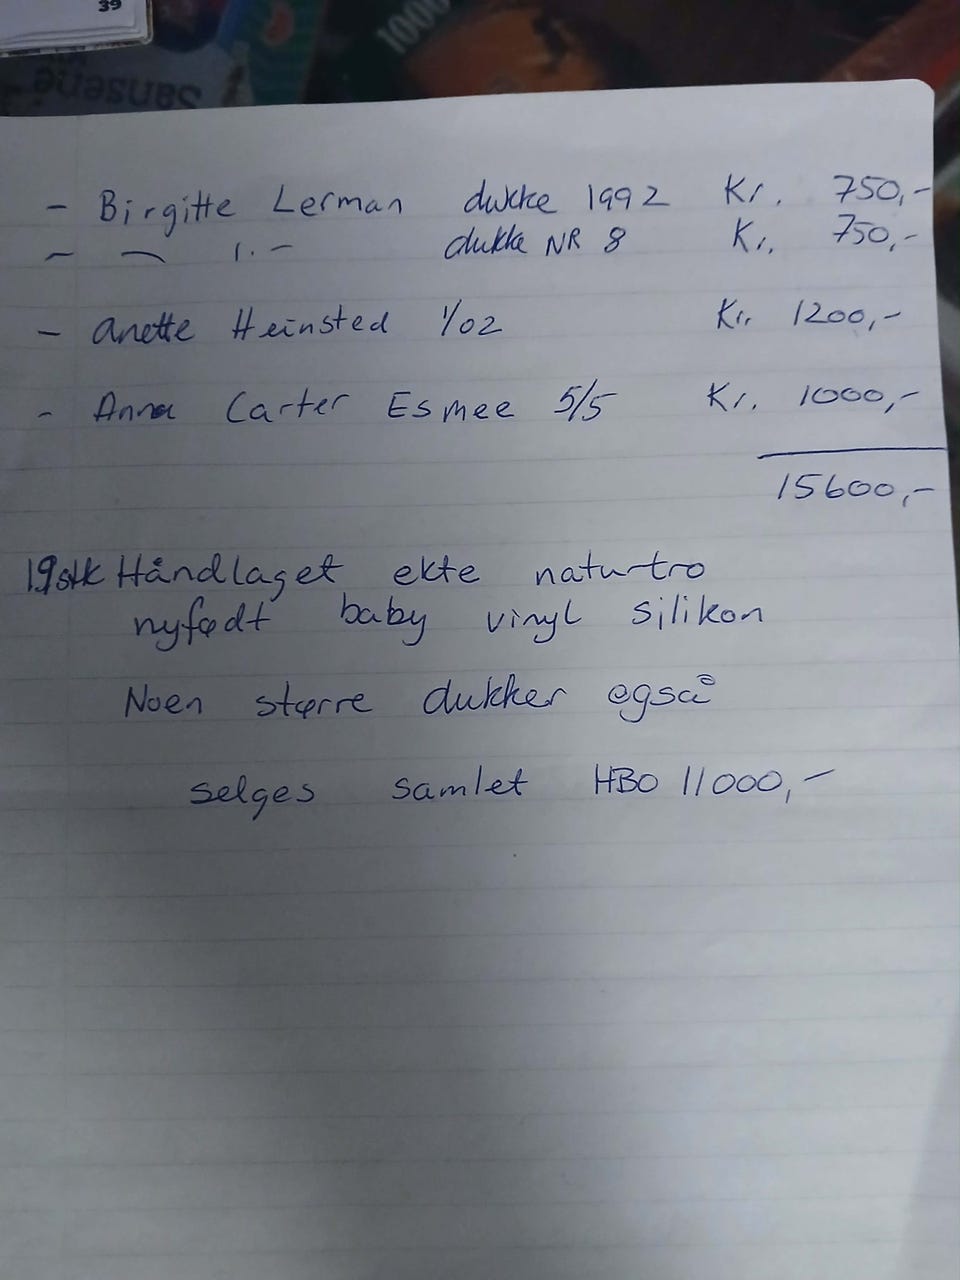 39
sansene
1000
- Birgitte Lerman dukke 1992 Kr. 750,-
- — 1. - dukke NR 8 Kr. 750,-
- Anette Heinsted 1/02 Kr. 1200,-
- Anna Carter Esmee 5/5 Kr. 1000,-
15600,-
19stk Håndlaget ekte naturtro
nyfødt baby vinyl silikon
Noen større dukker også
selges samlet HBO 11000,-